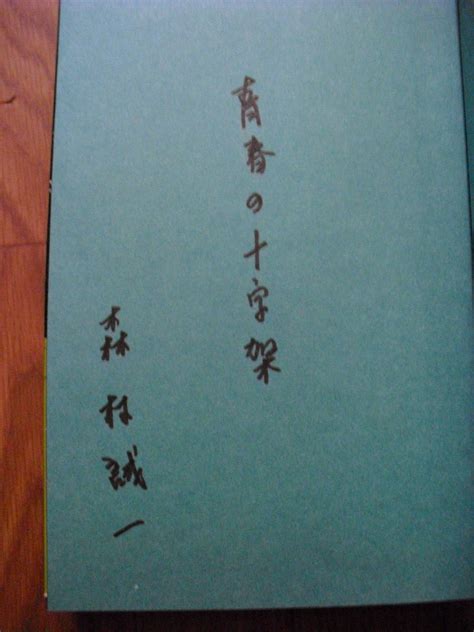 青春の十字架
森村誠一